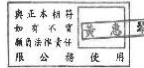 與正本相符
如有不實
願負法律責任
限公務使用
黃惠